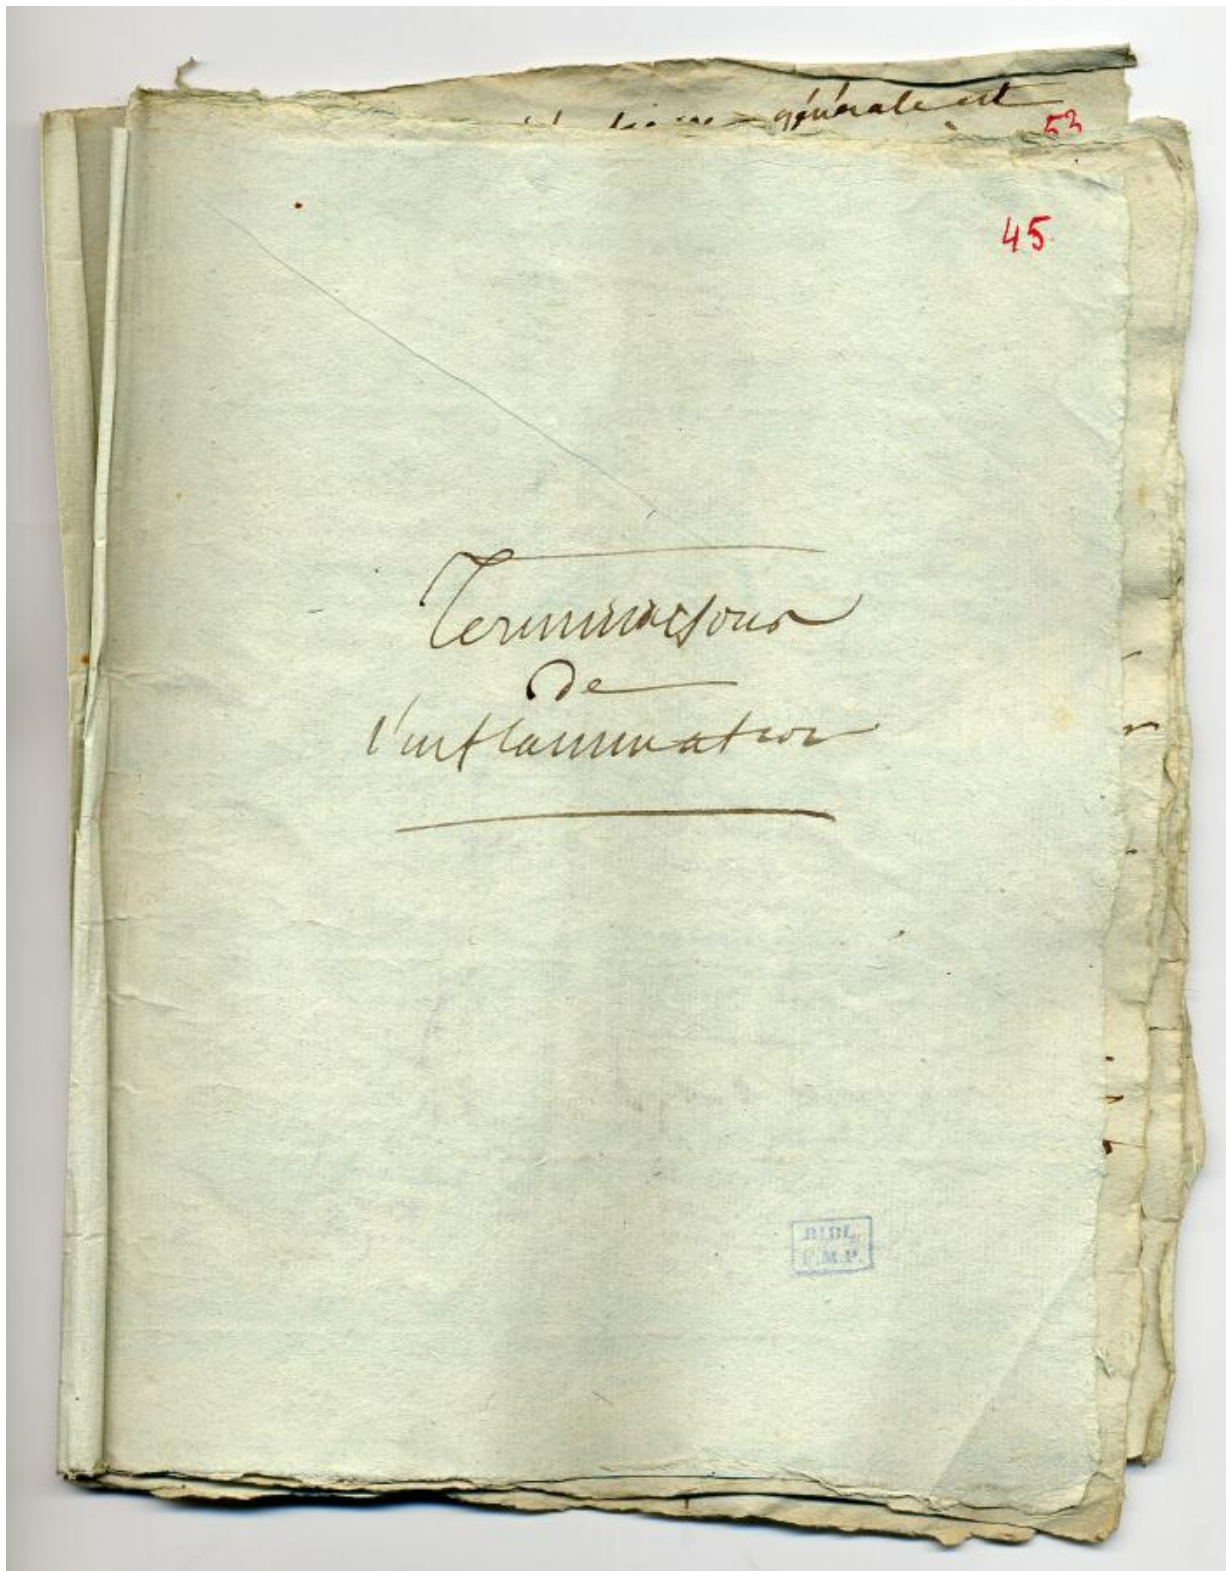 générale est
52
45
Terminaisons
de
l'inflammation
BIBL.
F.M.P.